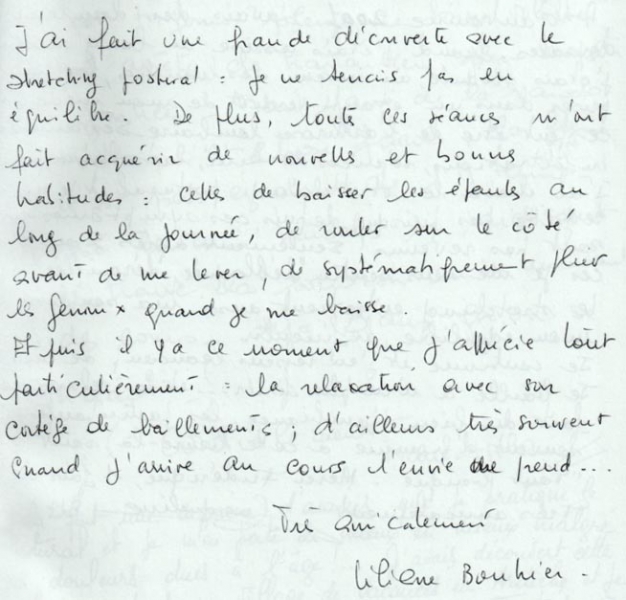 J'ai fait une grande découverte avec le
stretching postural : je ne tenais pas en
équilibre. De plus, toute ces séances m'ont
fait acquérir de nouvelles et bonnes
habitudes : celles de baisser les épaules au
long de la journée, de rouler sur le côté
avant de me lever, de systématiquement plier
les genoux quand je me baisse.
Et puis il y a ce moment que j'apprécie tout
particulièrement : la relaxation avec son
cortège de baillements ; d'ailleurs très souvent
quand j'arrive au cours l'envie me prend...
Très amicalement
Liliane Bouhier.